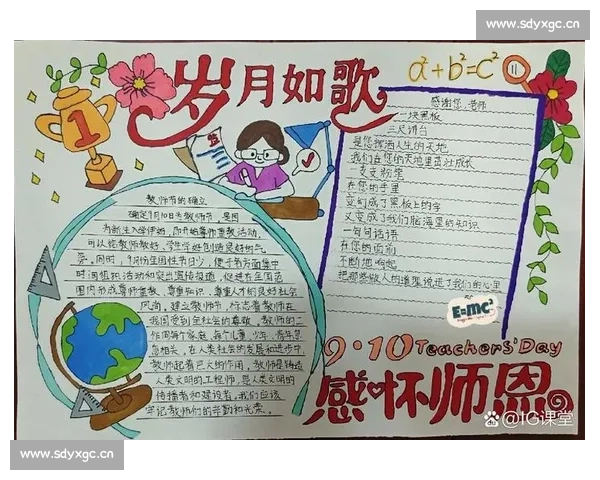 www.sdyxgc.cn
岁月如歌
a²+b²=c²
1
感谢您,老师
一块黑板
三尺讲台
是您挥洒人生的天地
我们在您的天地里茁壮成长
一支支粉笔
在您的手里
变幻成了黑板上的字
又变成了我们脑海里的知识
一句句话语
在您的面前
不断地响起
把那些做人的道理说进了我们的心里
E=mc²
教师节的确立
确定9月10日为教师节,是因
为新生入学伊始,即开始尊师重教活动,
可以给教师教好、学生学好创造良好的气
氛。同时,9月份全国性节日少,便于各方面集中
时间组织活动和突出宣传报道,促进在全国范
围内形成尊师重教、尊重知识、尊重人才的良好社会
风尚。建立教师节,标志着教师在
我国受到全社会的尊敬。教师的工
作同每个家庭、每个儿童、少年、青年息
息相关,在人类社会的发展和进步中,
教师起着巨大的作用。教师是铸造
人类文明的工程师,是人类文明的
传播者和建设者。我们应该
牢记教师们的辛勤和光荣。
9·10 Teacher's Day
感怀师恩
@IG课堂
www.sdyxgc.cn